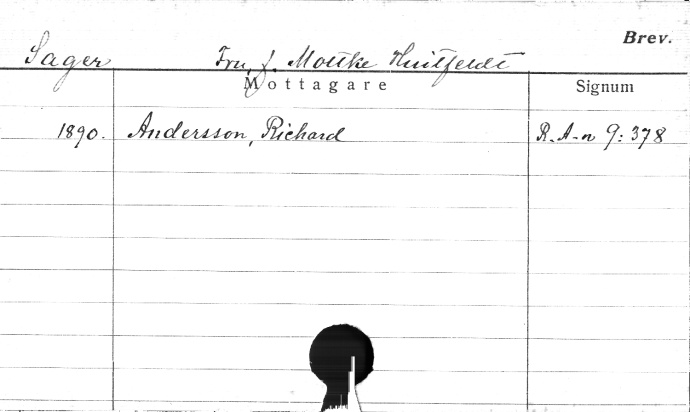 Brev.
Sager Fru, f. Moltke Huitfeldt
Mottagare Signum
1890. Andersson, Richard R. A-n 9:378